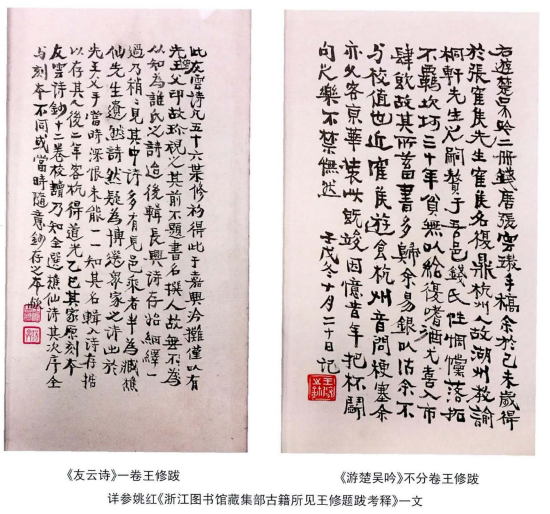 此友雲詩凡五十六葉修初得此于嘉興冷攤僅以有
先王父印故珍視之其前不題書名撰人故無
以知為誰氏之詩造後輯長興詩存始紬繹一
過乃稍稍見其中詩多有見邑乘者半為臧樵
仙先生遺詩然疑為博選眾家之詩出於
先王父手當時深恨未能一一知其名輯入詩存
以存其人後二年客杭得道光乙巳其家原刻本
友雲詩鈔十二卷校讀乃知全選樵仙詩其次序全
与刻本不同或當時隨意鈔存之本歟
右遊楚吳吟二冊錢唐張雲璈手稿余於己未歲得
於張寉先生寉名復鼎杭州人故湖州教諭
桐軒先生之嗣贅于吾邑錢氏性倜儻落拓
不羈坎坷三十年貧無以給復嗜酒尤喜入市
肆飲故其所蓄書多歸余易銀以沽余不
与校值也近寉遊食杭州音問梗塞余
亦久客京華裝此既竣因憶昔年把杯鬭
句之樂不禁憮然 壬戌冬十月二十日記
《友云诗》一卷王修跋
《游楚吴吟》不分卷王修跋
详参姚红《浙江图书馆藏集部古籍所见王修题跋考释》一文